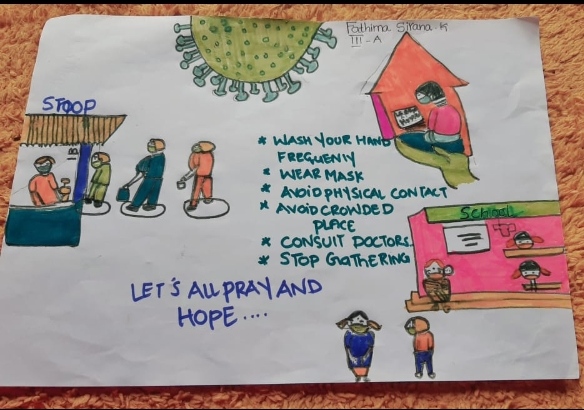 Fathima Sirana.K
III - A
STOOP
* WASH YOUR HAND
FREQUENIY
* WEAR MASK
* AVOID PHYSICAL CONTACT
* AVOID CROWDED
PLACE
* CONSUIT DOCTORS
* STOP GATHERING
SCHOOL
LET'S ALL PRAY AND
HOPE....